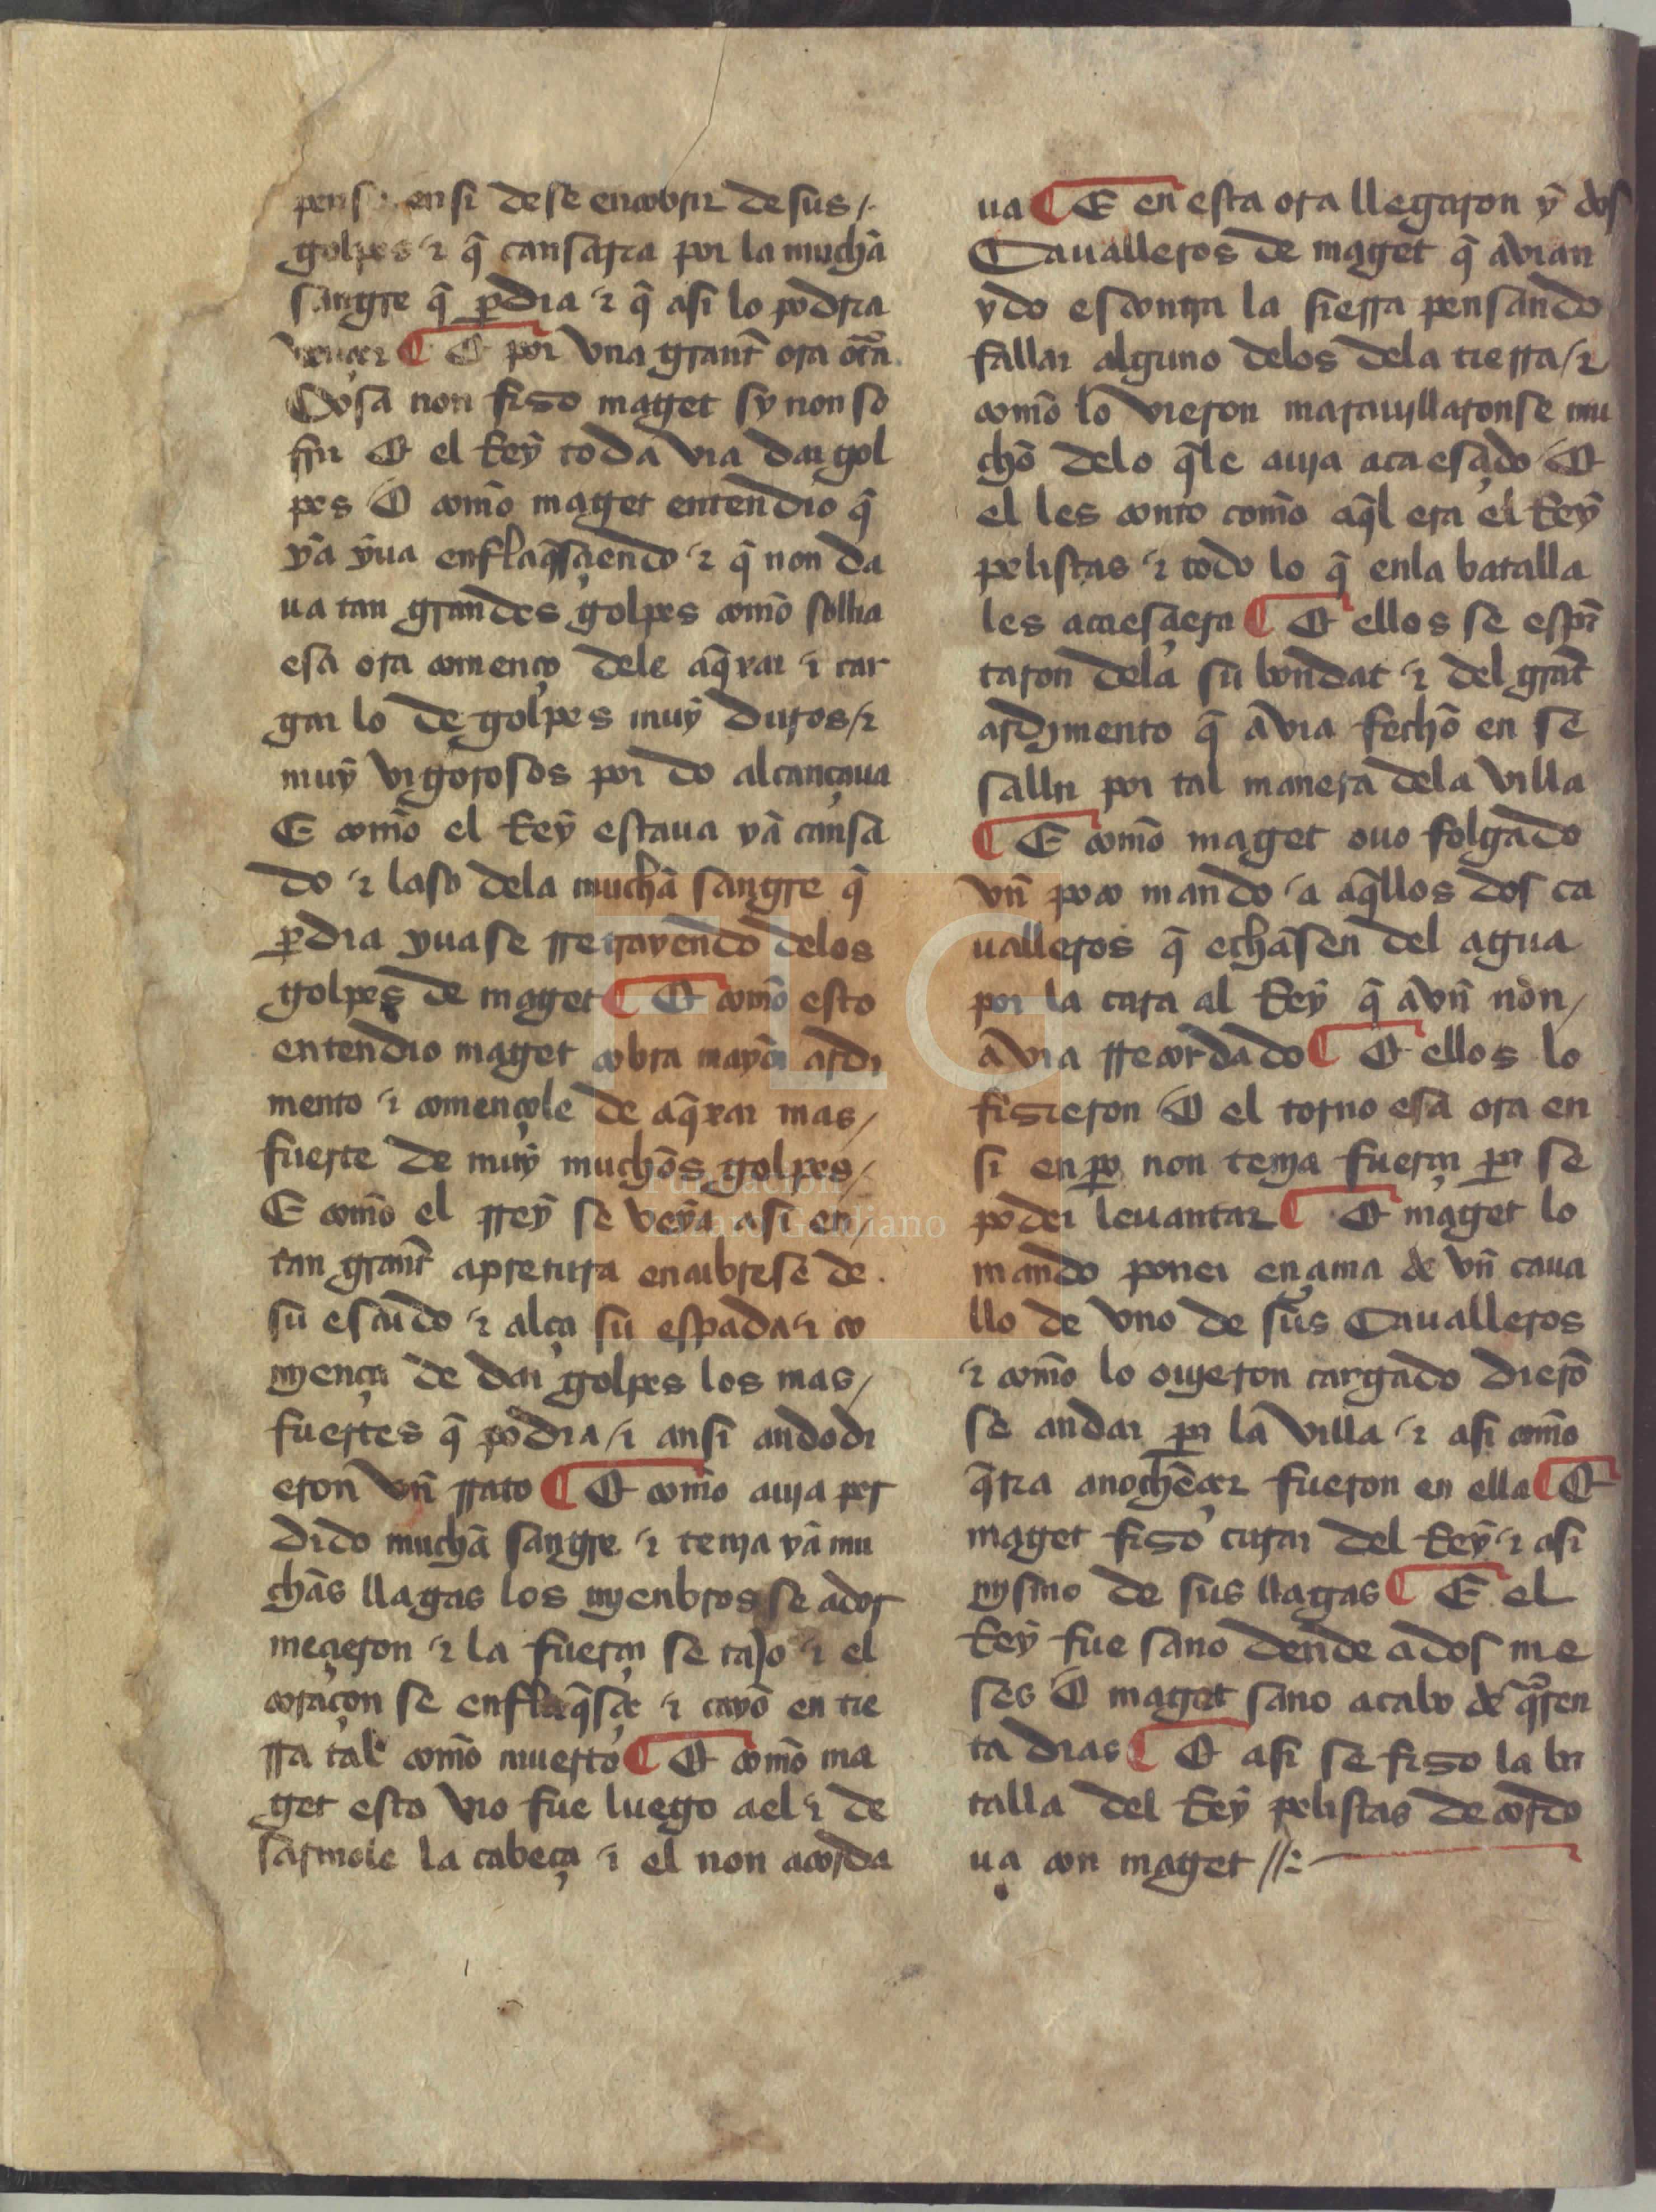 pens en si de se encobrir de sus /.
golpes ⁊ q̃ cansaria por la muchã
sangre q̃ ꝑdia ⁊ q̃ asi lo podria
vençer ¶ Et por vna grant̃ ora otra
Cosa non fiso maget sy non so
frir Et el Rey toda via dar gol
pes Et com̃o maget entendio q̃
ya yua enflaq̃sçiendo ⁊ q̃ non da
ua tan grandes golpes com̃o solia
esa ora començo dele aq̃xar ⁊ car
gar lo de golpes muy duros / ⁊
muy vigorosos por do alcançaua
E com̃o el Rey estaua ya cansa
do ⁊ laso dela muchã sangre q̃
ꝑdia yuase rretrayendo delos
golpes de maget ¶ Et com̃o esto
entendio maget cobra mayor ardi
mento ⁊ començole de aq̃xar mas /
fuerte de muy muchõs golpes /
E com̃o el rrey se veya asi en /
tan grant̃ apretura encubrese de .
su escudo ⁊ alça su espada ⁊ co
mjença de dar golpes los mas /
fuertes q̃ podia / ⁊ ansi andodi
eron vñ rrato ¶ Et com̃o auja per
dido muchã sangre ⁊ tenja ya mu
chãs llagas los mjenbros se ador
meçieron ⁊ la fuerça se tajo ⁊ el
coraçon se enflaq̃sçe ⁊ cayo en tie
rra tal com̃o muerto ¶ Et com̃o ma
get esto vio fue luego a el ⁊ de
sarmole la cabeça ⁊ el non acorda
ua ¶ E en esta ora llegaron y dos
Caualleros de maget q̃ avian
ydo escontra la sierra pensando
fallar alguno delos dela tierra / ⁊
com̃o lo vieron marauillaronse mu
chõ delo q̃le auja acaesçido Et
el les conto com̃o aq̃l era el Rey
pelistas ⁊ todo lo q̃ enla batalla
les acaesçiera ¶ Et ellos se espã
taron dela su bondat ⁊ del grant̃
ardimento q̃ avia fechõ en se
sallir por tal manera dela villa
¶ E com̃o maget ouo folgado
vñ poco mando a aq̃llos dos ca
ualleros q̃ echãsen del agua
por la cara al Rey q̃ avñ non /
avia rrecordado ¶ Et ellos lo
fisieron Et el torno esa ora en
si enꝑo non tenja fuerça ꝑa se
poder leuantar ¶ Et maget lo
mando poner ençima de vñ caua
llo de vno de sus Caualleros
⁊ com̃o lo oujeron cargado dierõ
se andar ꝑa la villa ⁊ asi com̃o
q̃ria anochẽçer fueron en ella ¶ Et
maget fiso curar del Rey ⁊ asi
mjsmo de sus llagas ¶ E el
Rey fue sano dende a dos me
ses Et maget sano a cabo de q̃ren
ta dias ¶ Et asi se fiso la ba
talla del Rey pelistas de cordo
ua con maget //:
FLG
Fundación
Lázaro Galdiano